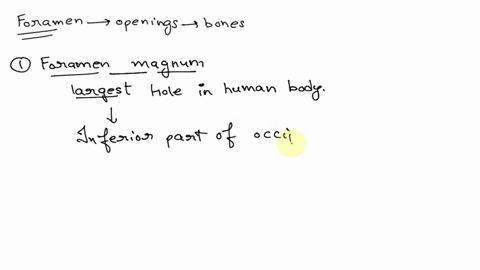 Foramen → openings → bones
① Foramen magnum
largest hole in human body.
↓
Inferior part of occi